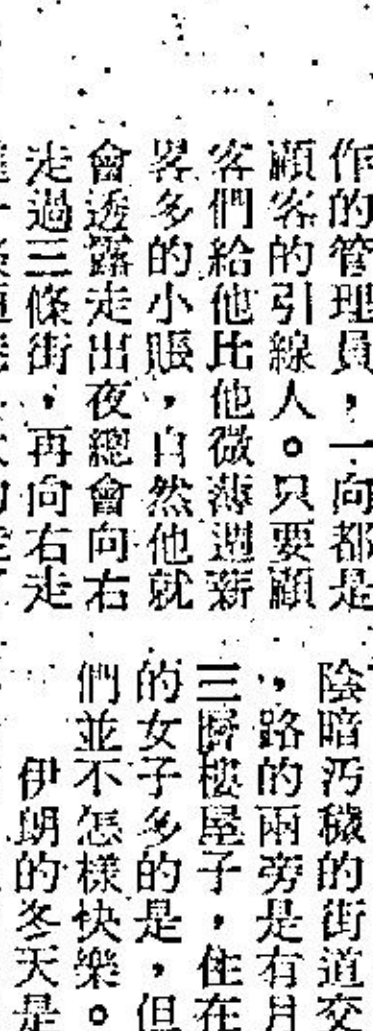 作的管理員，一向都是
顧客的引線人。只要顧
客們給他比他微薄週薪
畧多的小賬，自然他就
會透露走出夜總會向右
走過三條街，再向右走
陰暗汚穢的街道交
，路的兩旁是有月
三層樓屋子，住在
的女子多的是，但
們並不怎樣快樂。
伊朗的冬天是